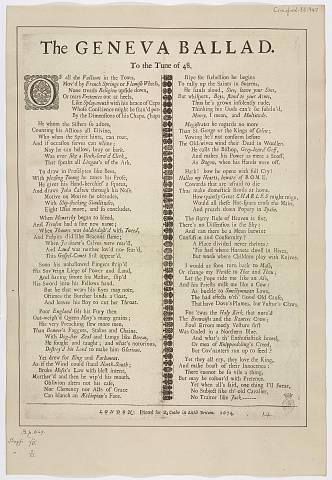 Crawford. EB. 940
The GENEVA BALLAD.
To the Tune of 48,
Of all the Factions in the Town,
Mov'd by French Springs or Flemish Wheels,
None treads Religion upside down,
Or tears Pretences out at heels,
Like Splay-mouth with his brace of Caps
Whose Conscience might be scan'd perhaps
By the Dimensions of his Chaps.
He whom the Sisters so adore,
Counting his Actions all Divine,
Who when the Spirit hints, can roar,
And if occasion serves can whine;
Nay he can bellow, bray or bark.
Was ever like a Beuk-learn'd Clerk,
That speaks all Lingua's of the Ark.
To draw in Proselytes like Bees,
With pleasing Twang he tones his Prose,
He gives his Hand-kerchief a squeez,
And draws John Calvin through his Nose.
Motive on Motive he obtrudes,
With Slip-stocking Similitudes,
Eight Uses more, and so concludes.
When Monarchy began to bleed,
And Treason had a fine new name;
When Thames was balderdash'd with Tweed,
And Pulpits did like Beacons flame;
When Jeroboam's Calves were rear'd,
And Laud was neither lov'd nor fear'd,
This Gospel-Comet first appear'd.
Soon his unhallowed Fingers strip'd
His Sov'reign Liege of Power and Land,
And having smote his Master, slip'd
His Sword into his Fellows hand.
But he that wears his Eyes may note,
Oftimes the Butcher binds a Goat,
And leaves his Boy to cut her Throat.
Poor England felt his Fury then
Out-weigh'd Queen Mary's many grains;
His very Preaching slew more men,
Than Bonner's Faggots, Stakes and Chains.
With Dog-star Zeal and Lungs like Boreas,
He fought and taught; and what's notorious,
Destroy'd his Lord to make him Glorious.
Yet drew for King and Parliament,
As if the Wind cou'd stand North-South;
Broke Moses's Law with blest intent,
Murther'd and then he wip'd his mouth.
Oblivion alters not his case,
Nor Clemency nor Acts of Grace
Can blanch an Æthiopian's Face.
Ripe for Rebellion he begins
To rally up the Saints in swarms,
He bauls aloud, Sirs, leave your Sins,
But whispers, Boys, stand to your Arms,
Thus he's grown insolently rude,
Thinking his Gods can't be subdu'd,
Money, I mean, and Multitude.
Magistrates he regards no more
Than St. George or the Kings of Colen;
Vowing he'll not conform before
The Old-wives wind their Dead in Woollen.
He calls the Bishop, Gray-hair'd Coff,
And makes his Power as mere a Scoff,
As Dagon, when his Hands were off.
Hark! how he opens with full Cry!
Hallow my Hearts, beware of ROME.
Cowards that are afraid to die
Thus make domestick Brawls at home.
How quietly Great CHARLES might reign,
Would all these Hot-spurs cross the Main,
And preach down Popery in Spain.
The starry Rule of Heaven is fixt,
There's no Dissension in the Sky:
And can there be a Mean betwixt
Confusion and Conformity?
A Place divided never thrives:
'Tis bad where Hornets dwell in Hives,
But worse where Children play with Knives.
I would as soon turn back to Mass,
Or change my Phrase to Thee and Thou;
Let the Pope ride me like an Ass,
And his Priests milk me like a Cow:
As buckle to Smectymnuan Laws,
The bad effects o'th' Good Old Cause,
That have Dove's Plumes, but Vulture's Claws.
For 'twas the Holy Kirk that nurs'd
The Brownists and the Ranters Crew;
Foul Errors motly Vesture first
Was Oaded in a Northern Blue.
And what's th' Enthusiastick breed,
Or men of Knipperdoling's Creed,
But Cov'nanters run up to feed?
Yet they all cry, they love the King,
And make boast of their Innocence:
There cannot be so vile a thing,
But may be colour'd with Pretence.
Yet when all's said, one thing I'll swear,
No Subject like th' old Cavalier,
No Traitor like Jack———
LONDON; Printed for H. Brome in Little Britain. 1674.